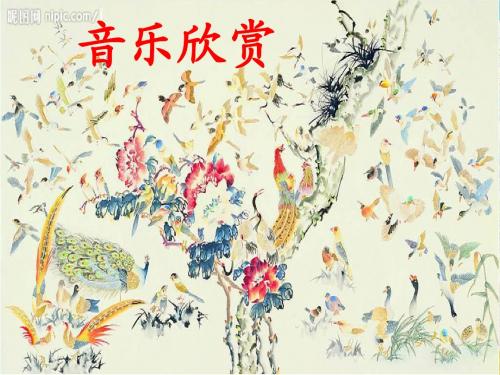 昵图网 nipic.com/
音乐欣赏